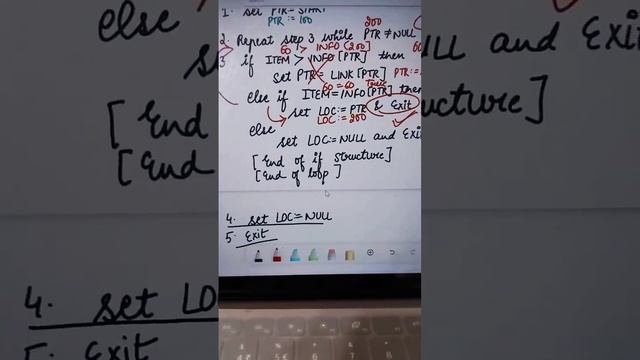 1. Set PTR = START
PTR := 100
200
2. Repeat step 3 while PTR ≠ NULL
60 > INFO [200]
3 if ITEM > INFO [PTR] then
Set PTR = LINK [PTR] PTR :=
60 = 60 True
else if ITEM = INFO [PTR] then
set LOC := PTR & Exit
LOC := 200
else
set LOC := NULL and Exit
[End of if structure]
[End of loop]
4. set LOC := NULL
5. Exit
else
[End
[End
NULL and Exit
structure]
4. set LO
5. Exit